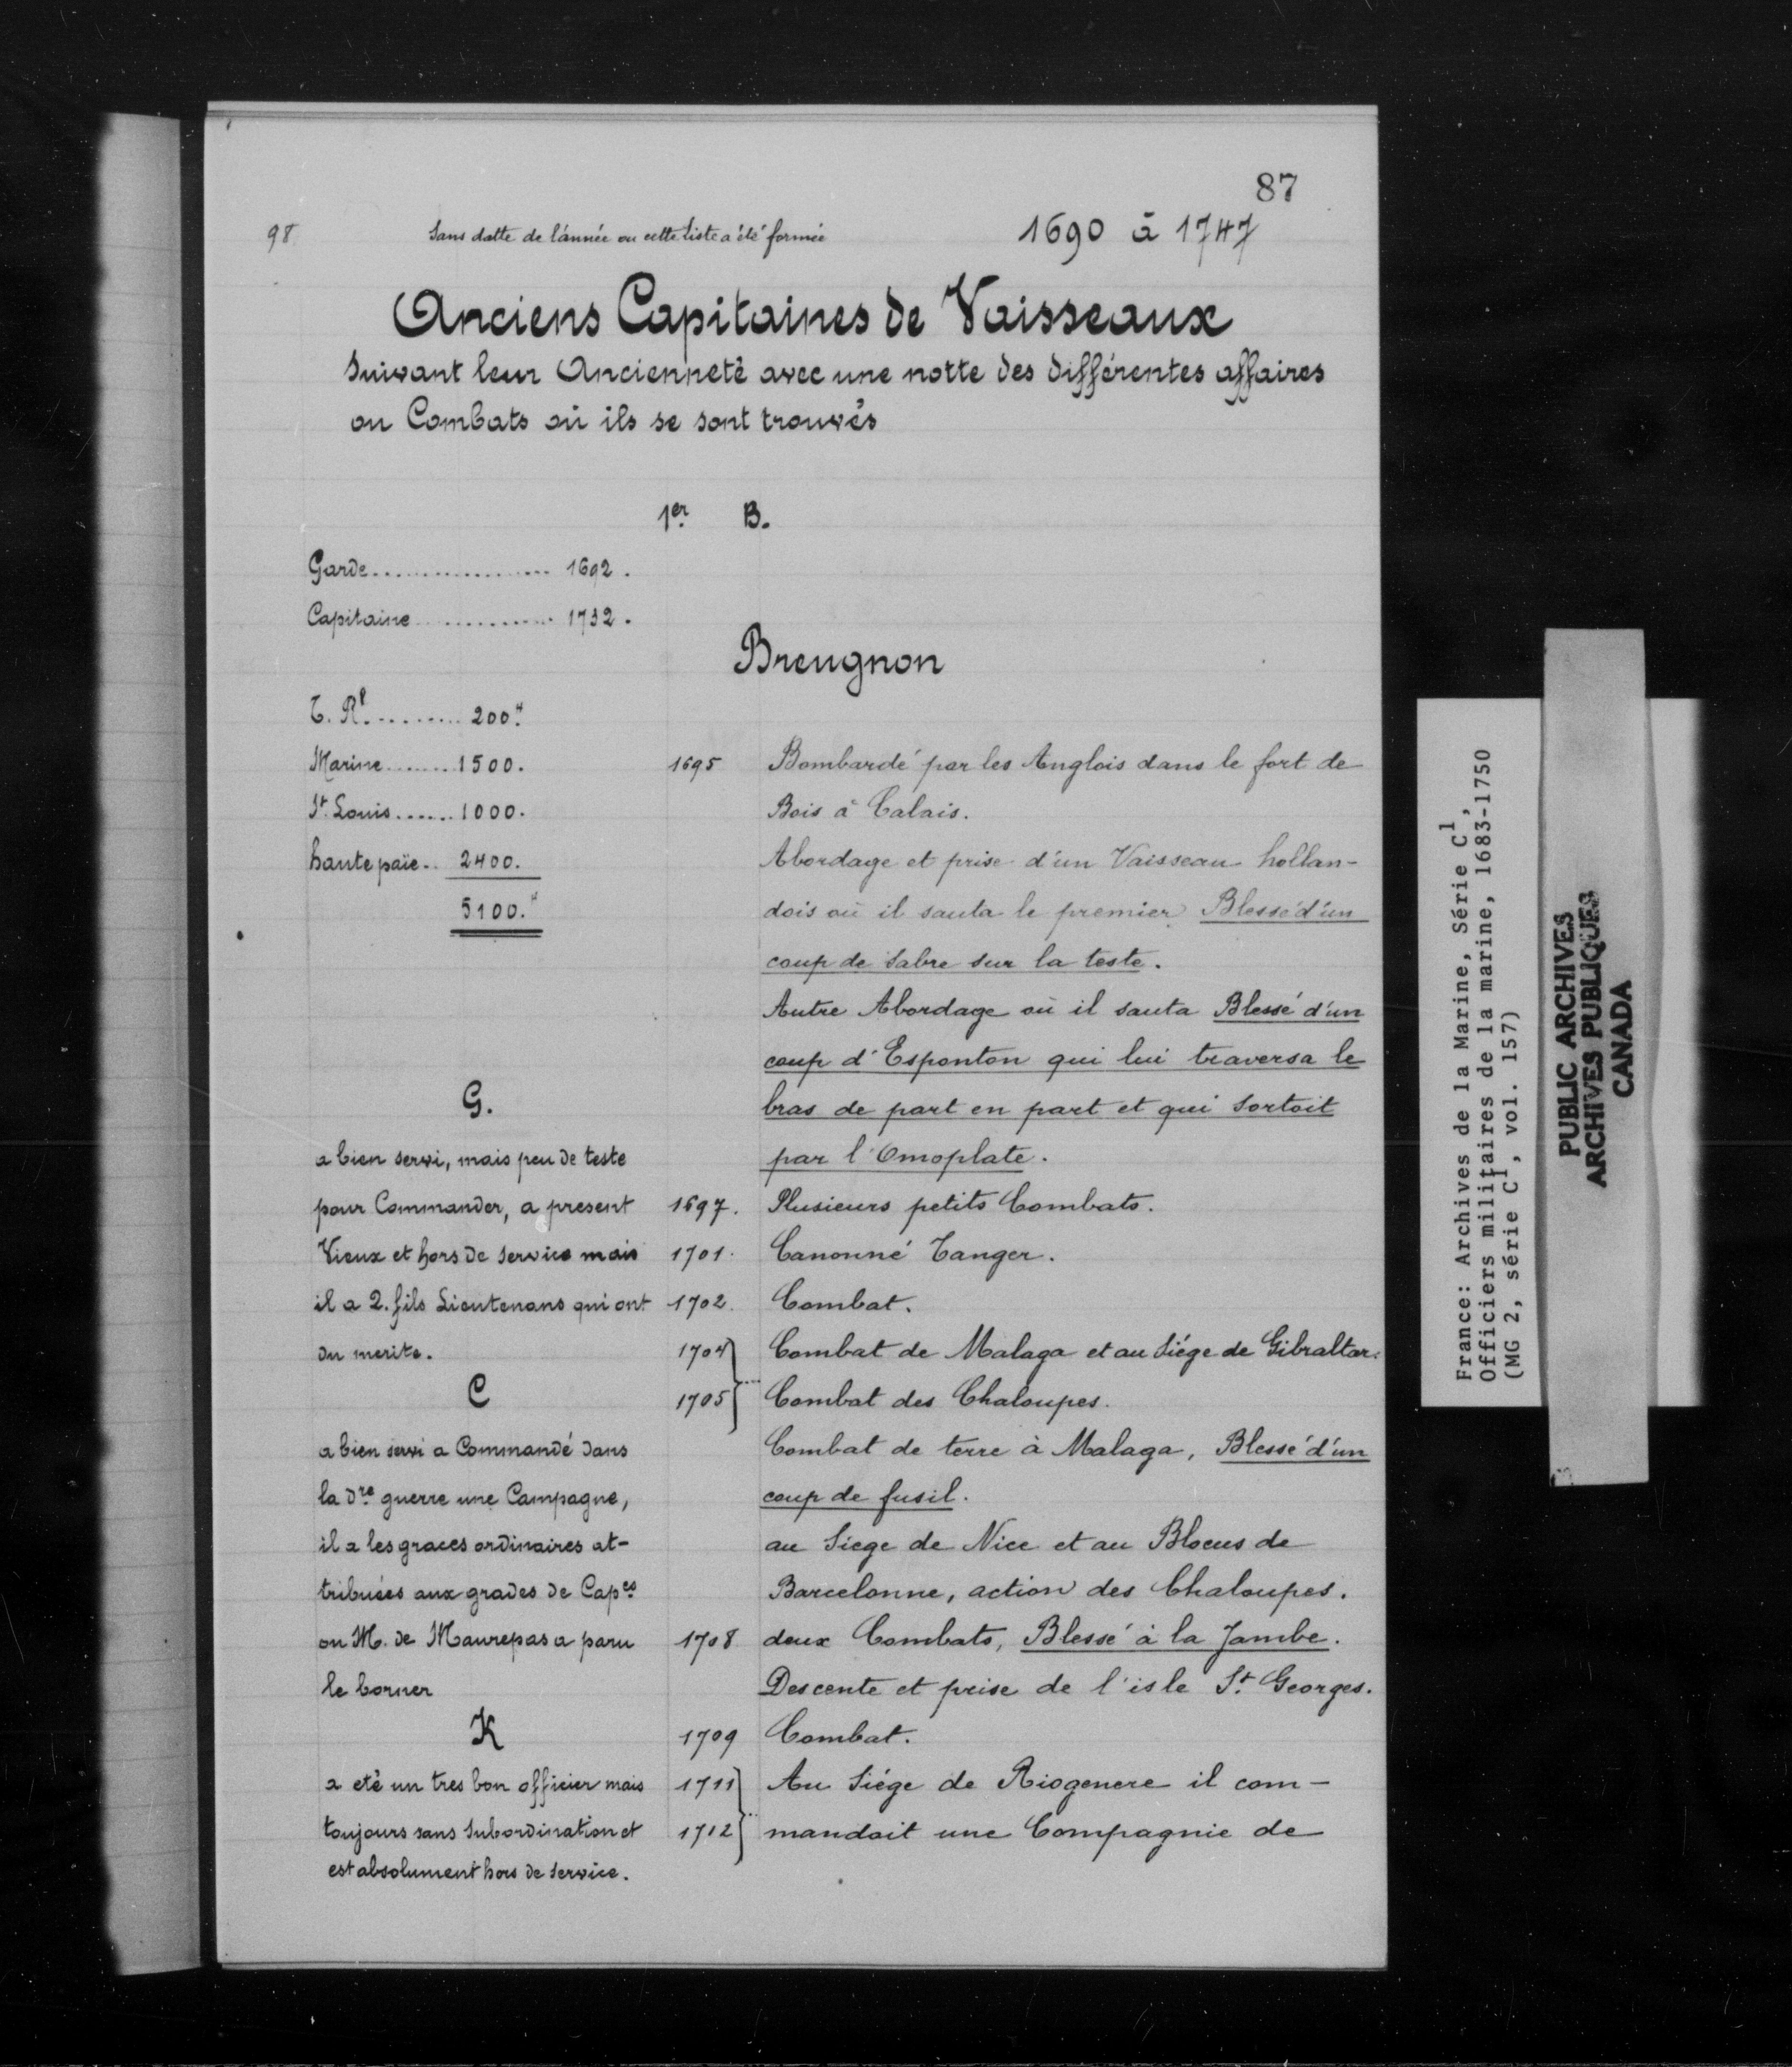 87
98
Sans datte de l'année ou cette liste a été formée
1690 à 1747
Anciens Capitaines de Vaisseaux
Suivant leur Ancienneté avec une notte des différentes affaires
ou Combats où ils se sont trouvés
1er. B.
Garde.................. 1692.
Capitaine .............. 1732.
Breugnon
T. Rl. ......... 200.#
Marine....... 1500.
St. Louis...... 1000.
haute païe.. 2400.
5100.#
G.
a bien servi, mais peu de teste
pour Commander, a present
Vieux et hors de Service mais
il a 2. fils Lieutenans qui ont
du merite.
C
a bien servi a Commandé dans
la dre guerre une Campagne,
il a les graces ordinaires at-
tribuées aux grades de Capes
ou M. de Maurepas a paru
le borner
K
a eté un tres bon officier mais
toujours sans Subordination et
est absolument hors de Service.
1695 Bombardé par les Anglois dans le fort de
Bois à Calais.
Abordage et prise d'un Vaisseau hollan-
dois où il sauta le premier Blessé d'un
coup de Sabre sur la teste.
Autre Abordage où il sauta Blessé d'un
coup d'Esponton qui lui traversa le
bras de part en part et qui Sortoit
par l'Omoplate.
1697. Plusieurs petits Combats.
1701. Canonné Tanger.
1702. Combat.
1704 Combat de Malaga et au Siége de Gibraltar.
1705 Combat des Chaloupes.
Combat de terre à Malaga, Blessé d'un
coup de fusil.
au Siege de Nice et au Blocus de
Barcelonne, action des Chaloupes.
1708 deux Combats, Blessé à la Jambe.
Descente et prise de l'isle St. Georges.
1709 Combat.
1711 Au Siége de Riogenere il com-
1712 mandait une Compagnie de
France: Archives de la Marine, Série C1,
Officiers militaires de la marine, 1683-1750
(MG 2, série C1, vol. 157)
PUBLIC ARCHIVES
ARCHIVES PUBLIQUES
CANADA